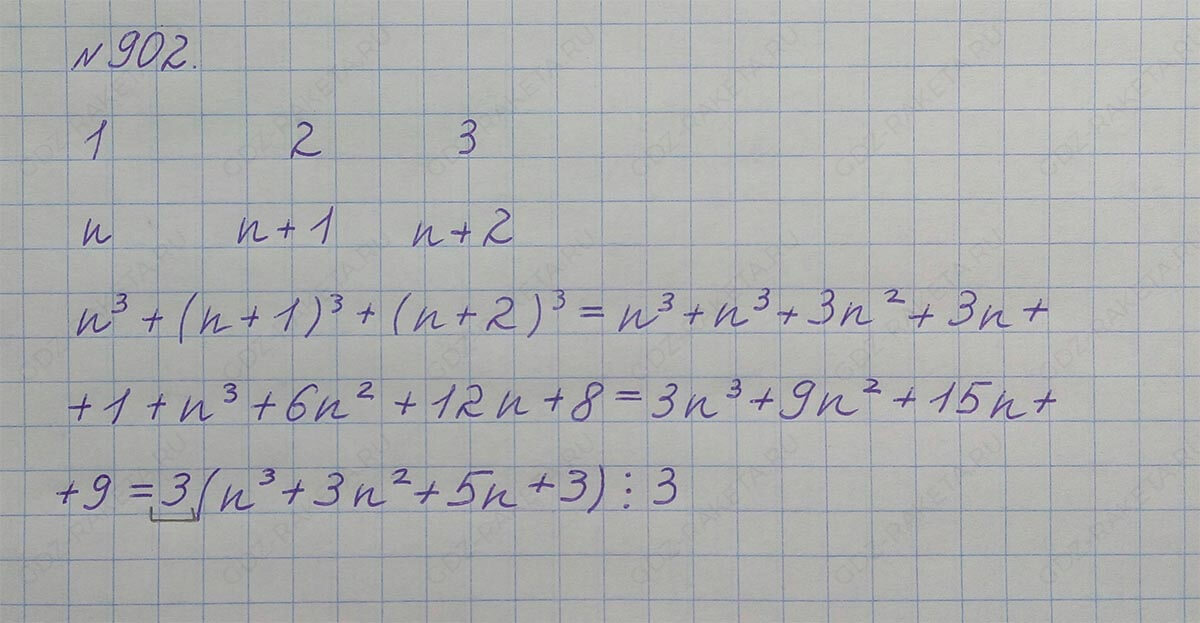 №902.
1 2 3
n n+1 n+2
n³+(n+1)³+(n+2)³=n³+n³+3n²+3n+
+1+n³+6n²+12n+8=3n³+9n²+15n+
+9=3(n³+3n²+5n+3)⋮3